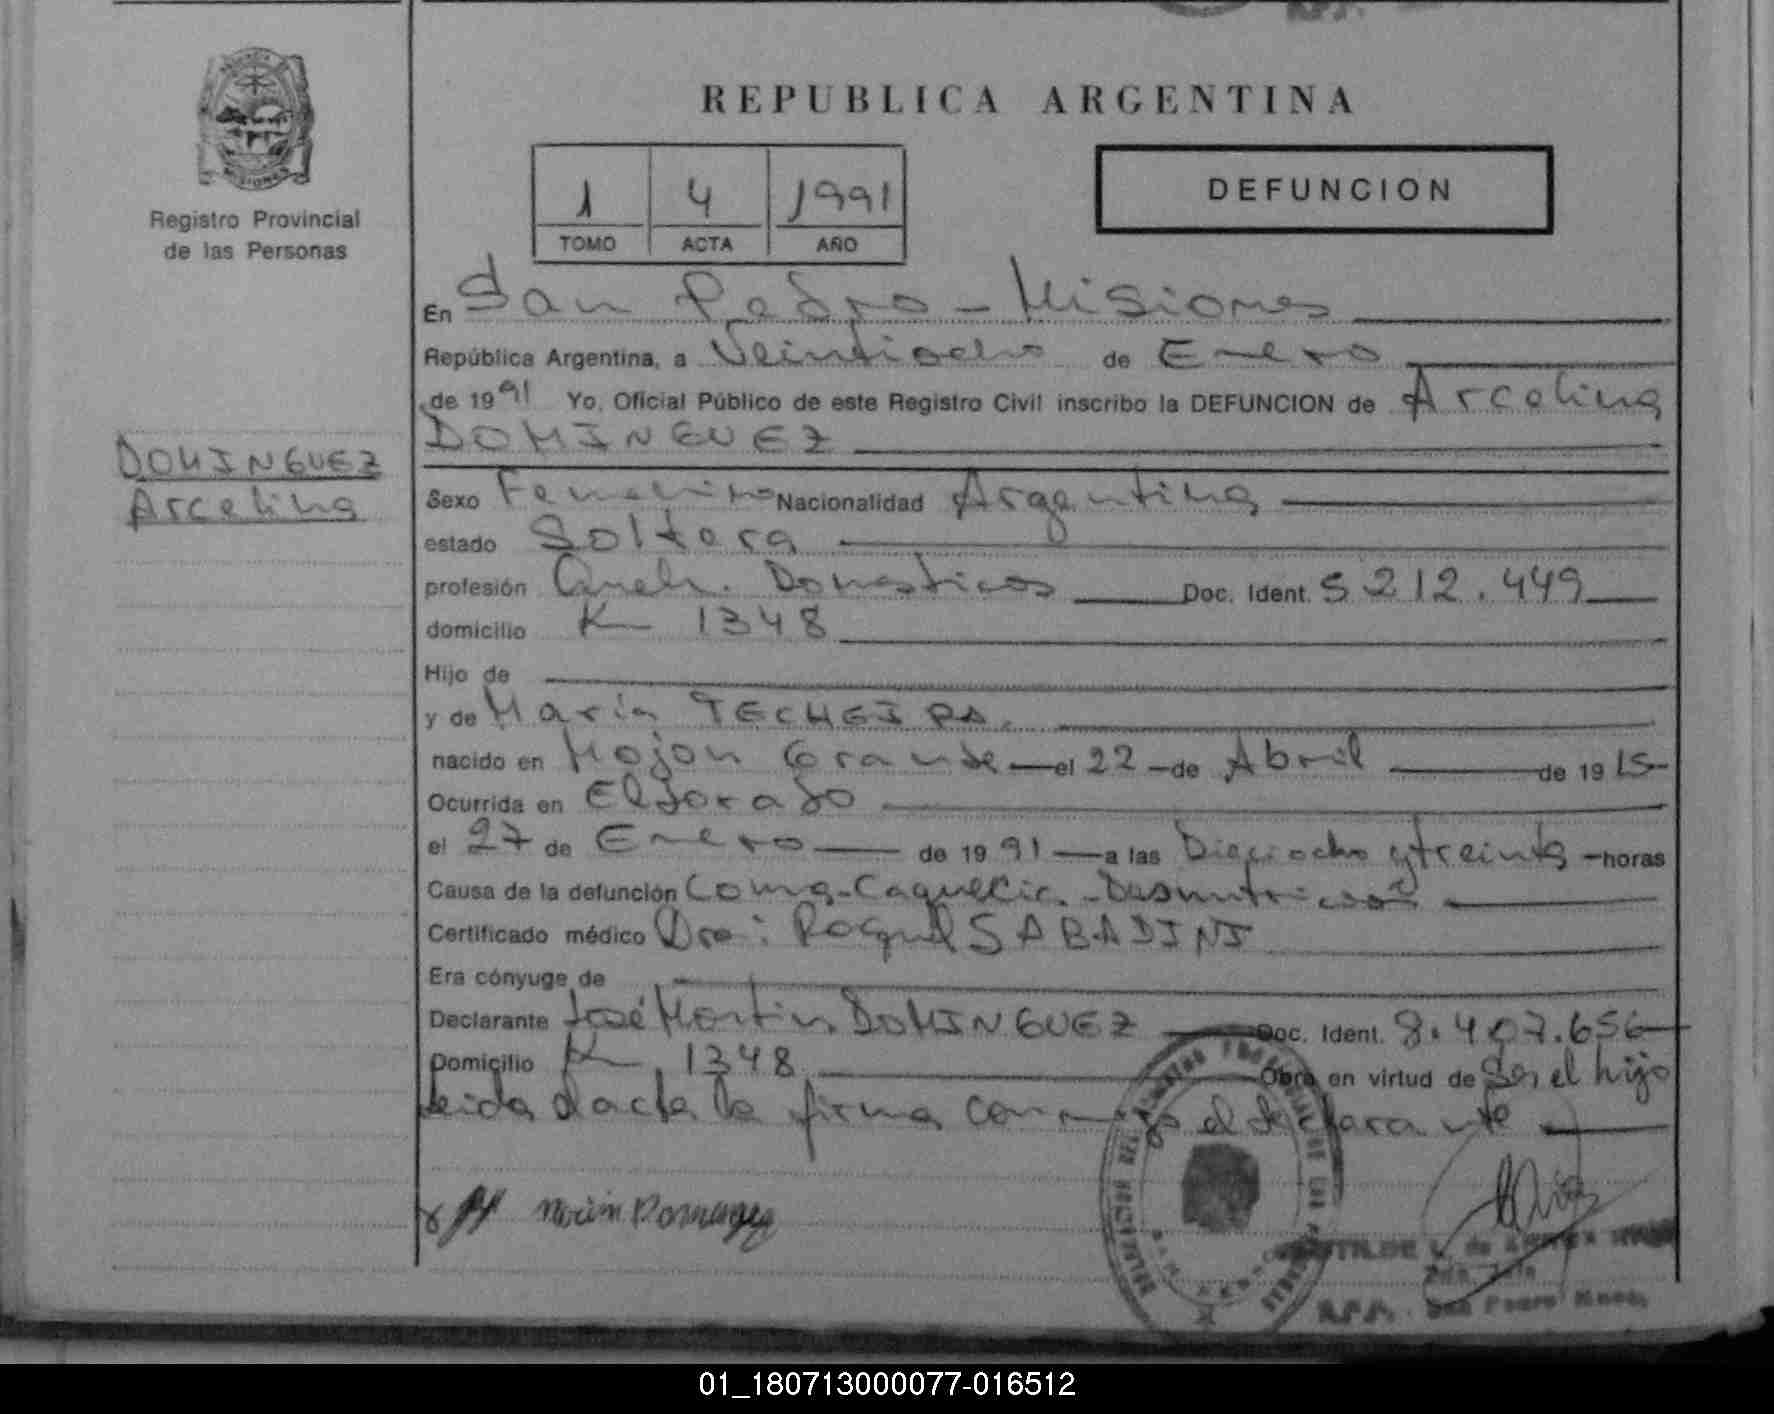 REPUBLICA ARGENTINA
Registro Provincial
de las Personas
1 4 1991
TOMO ACTA AÑO
DEFUNCION
En San Pedro - Misiones
República Argentina, a Veintiocho de Enero
de 1991 Yo, Oficial Público de este Registro Civil inscribo la DEFUNCION de Arcelina
DOMINGUEZ
DOMINGUEZ
Arcelina
Sexo Femenino Nacionalidad Argentina
estado Soltera
profesión Queh. Domesticos Doc. Ident. 5212.449
domicilio Km 1348
Hijo de
y de María TECHEIRA.
nacido en Mojon Grande el 22 de Abril de 1915
Ocurrida en Eldorado
el 27 de Enero de 1991 a las Dieciocho y treinta horas
Causa de la defunción Coma-Caquexia-Desnutricion
Certificado médico Dra: Raquel SABADINI
Era cónyuge de
Declarante José Martin DOMINGUEZ Doc. Ident. 8.407.656
Domicilio Km 1348 Obra en virtud de Ser el hijo
leida el acta la firma conmigo el declarante
R.P.P. San Pedro Mnes.
01_180713000077-016512